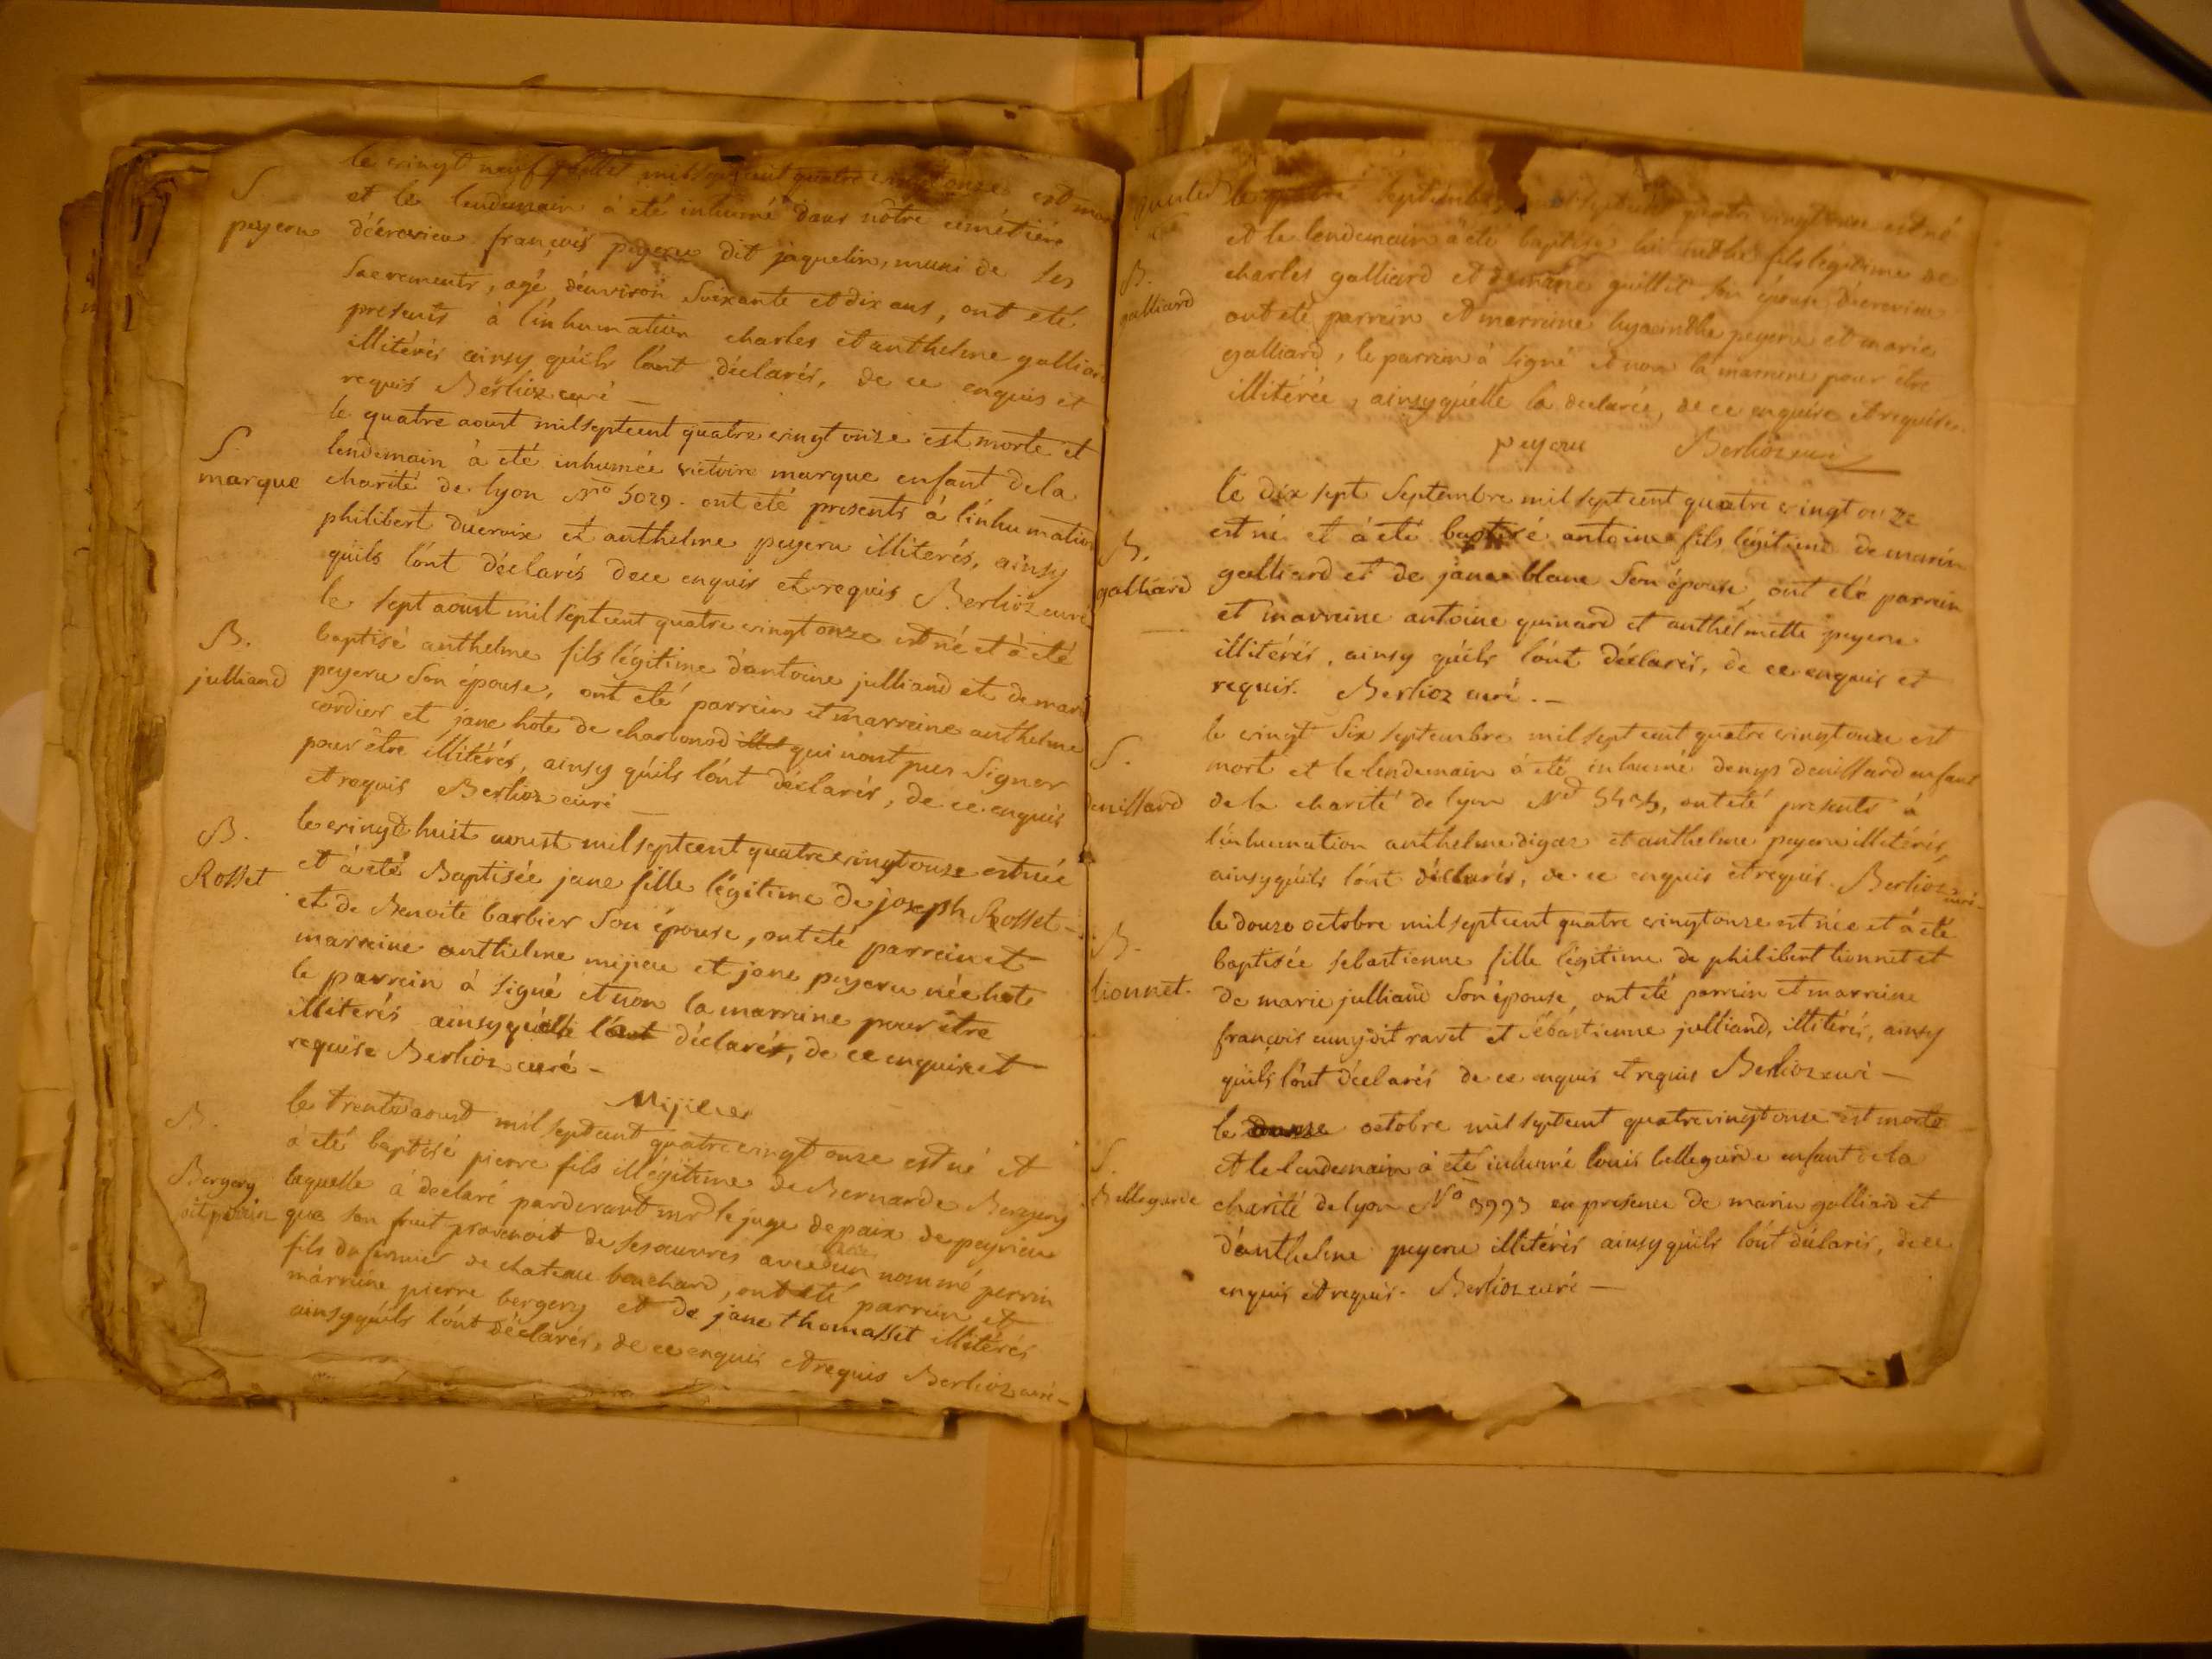 le vingt neuf juillet mil sept cent quatre vingt onze est mort
S.
et le lendemain à eté inhumé dans nôtre cimétiére
peyeru
déerovieu françois peyeru dit jaquelin, muni de ses
Sacrements, agé dénviron Soixante et dix ans, ont eté
presents à línhumation charles et anthelme galliard
illitérés ainsy qúils lónt déclarés, de ce enquis et
requis Berlioz curé —
S.
le quatre aoust mil sept cent quatre vingt onze est morte et
marque
lendemain à eté inhumée victoire marque enfant de la
charité de lyon No 5029. ont eté presents à línhumation
philibert ducroix et anthelme peyeru illiterés, ainsy
qúils lónt déclarés de ce enquis et requis Berlioz curé
B.
le sept aoust mil sept cent quatre vingt onze est né et à eté
julliand
baptisé anthelme fils légitime dántoine julliand et de marie
peyeru Son épouse, ont eté parrein et marreine anthelme
cordier et jane hote de charbonod qui nont peu Signer
pour être illitérés, ainsy qúils lónt déclarés, de ce enquis
et requis Berlioz curé —
B.
le vingt huit aoust mil sept cent quatre vingt onze est née
Rosset
et à eté Baptisée jane fille légitime de joseph Rosset —
et de Benoite barbier Son épouse, ont eté parrein et
marreine anthelme mijieu et jane peyeru née hote
le parrein à signé et non la marreine pour être
illiterés ainsy qúelle lá déclaré, de ce enquise et
requise Berlioz curé —
Mijieu
B.
le trente aoust mil sept cent quatre vingt onze est né et
à eté baptisé pierre fils illégitime de Bernarde Bergery
Bergery
laquelle à declaré pardevant mr le juge de paix de peyrieu
dit perrin
que son fruit provenoit de ses œuvres avec un nommé perrin
fils du fermier de chateau bouchard, ont eté parrein et
marreine pierre bergery et de jane thomasset illitérés
ainsy qúils lónt déclarés, de ce enquis et requis Berlioz curé —
le quatre septembre mil sept cent quatre vingt onze est né
et le lendemain à eté baptisé fils légitime de
B.
galliard
charles galliard et guillet son épouse déerovieu
ont eté parrein et marreine hyacinthe peyeru et marie
galliard, le parrein à signé et non la marreine pour être
illitérée, ainsy qúelle la declarée, de ce enquise et requise.
peyeru Berlioz curé
le dix sept Septembre mil sept cent quatre vingt onze
B.
est né et à eté baptisé antoine fils légitime de marin
galliard
galliard et de jane blanc Son épouse, ont eté parrein
et marreine antoine guinard et anthelmette peyeru
illitérés, ainsy qúils lónt déclarés, de ce enquis et
requis. Berlioz curé. —
le vingt Six septembre mil sept cent quatre vingt onze est
S.
mort et le lendemain à eté inhumé denys denillard enfant
denillard
de la charité de lyon ont eté presents à
línhumation anthelme digaz et anthelme peyeru illitérés,
ainsy qúils lónt déclarés, de ce enquis et requis. Berlioz curé —
le douze octobre mil sept cent quatre vingt onze est née et à eté
B.
baptisée sebastienne fille légitime de philibert lionnet et
lionnet.
de marie julliand Son épouse, ont eté parrein et marreine
françois cuny dit ravet et sébastienne julliand, illitérés, ainsy
qúils lónt déclarés de ce enquis et requis Berlioz curé —
le octobre mil sept cent quatre vingt onze est morte
S.
et le lendemain à eté inhumé louis bellegarde enfant de la
Bellegarde
charité de lyon No 3993 en presence de marin galliard et
dánthelme peyeru illitérés ainsy qúils lónt déclarés, de ce
enquis et requis. Berlioz curé —